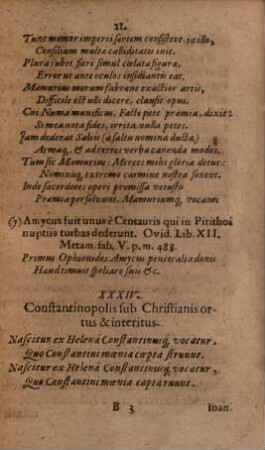 21.
Tunc memor imperii sortem consistere in illo,
Consilium multa calliditatis init.
Plura jubet fieri simul cœlata figura,
Error ut ante oculos insidiantis eat.
Mamurius morum fabrane exactior artis,
Difficile est ulli dicere, clausit opus.
Cui Numa munificus, Facti pete præmia, dixit:
Si mea nota fides, irrita nulla petes.
Jam dederat Saliis (a saltu nomina ducta)
Armaq́, & ad certos verba canenda modos.
Tum sic Mamurius: Merces mihi gloria detur:
Nominaq́, extremo carmine nostra sonent.
Inde sacerdotes operi promissa vetusto
Præmia persolvunt, Mamuriumq́, vocant
(y) Amycus fuit unus è Centauris qui in Pirithoi
nuptiis turbas dederunt. Ovid. Lib. XII.
Metam. fab. V. p. m. 488.
Primus Ophionides Amycus penetralia donis
Haud timuit spoliare suis &c.
XXXIV.
Constantinopolis sub Christianis or-
tus & interitus.
Nascitur ex Helenâ Constantinusq́, vocatur,
Quo Constantini mœnia cœpta struunt.
Nascitur ex Helenâ Constantinusq́, vocatur,
Quo Constantini mœnia capta ruunt.
B 3 Ioan.